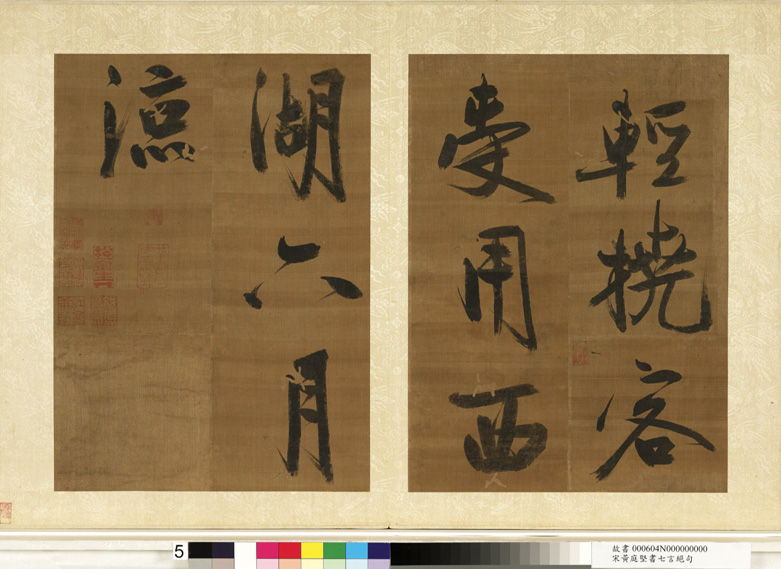 輕橈客
受用西
湖六月
涼
5
故書 000604N000000000
宋黃庭堅書七言絕句